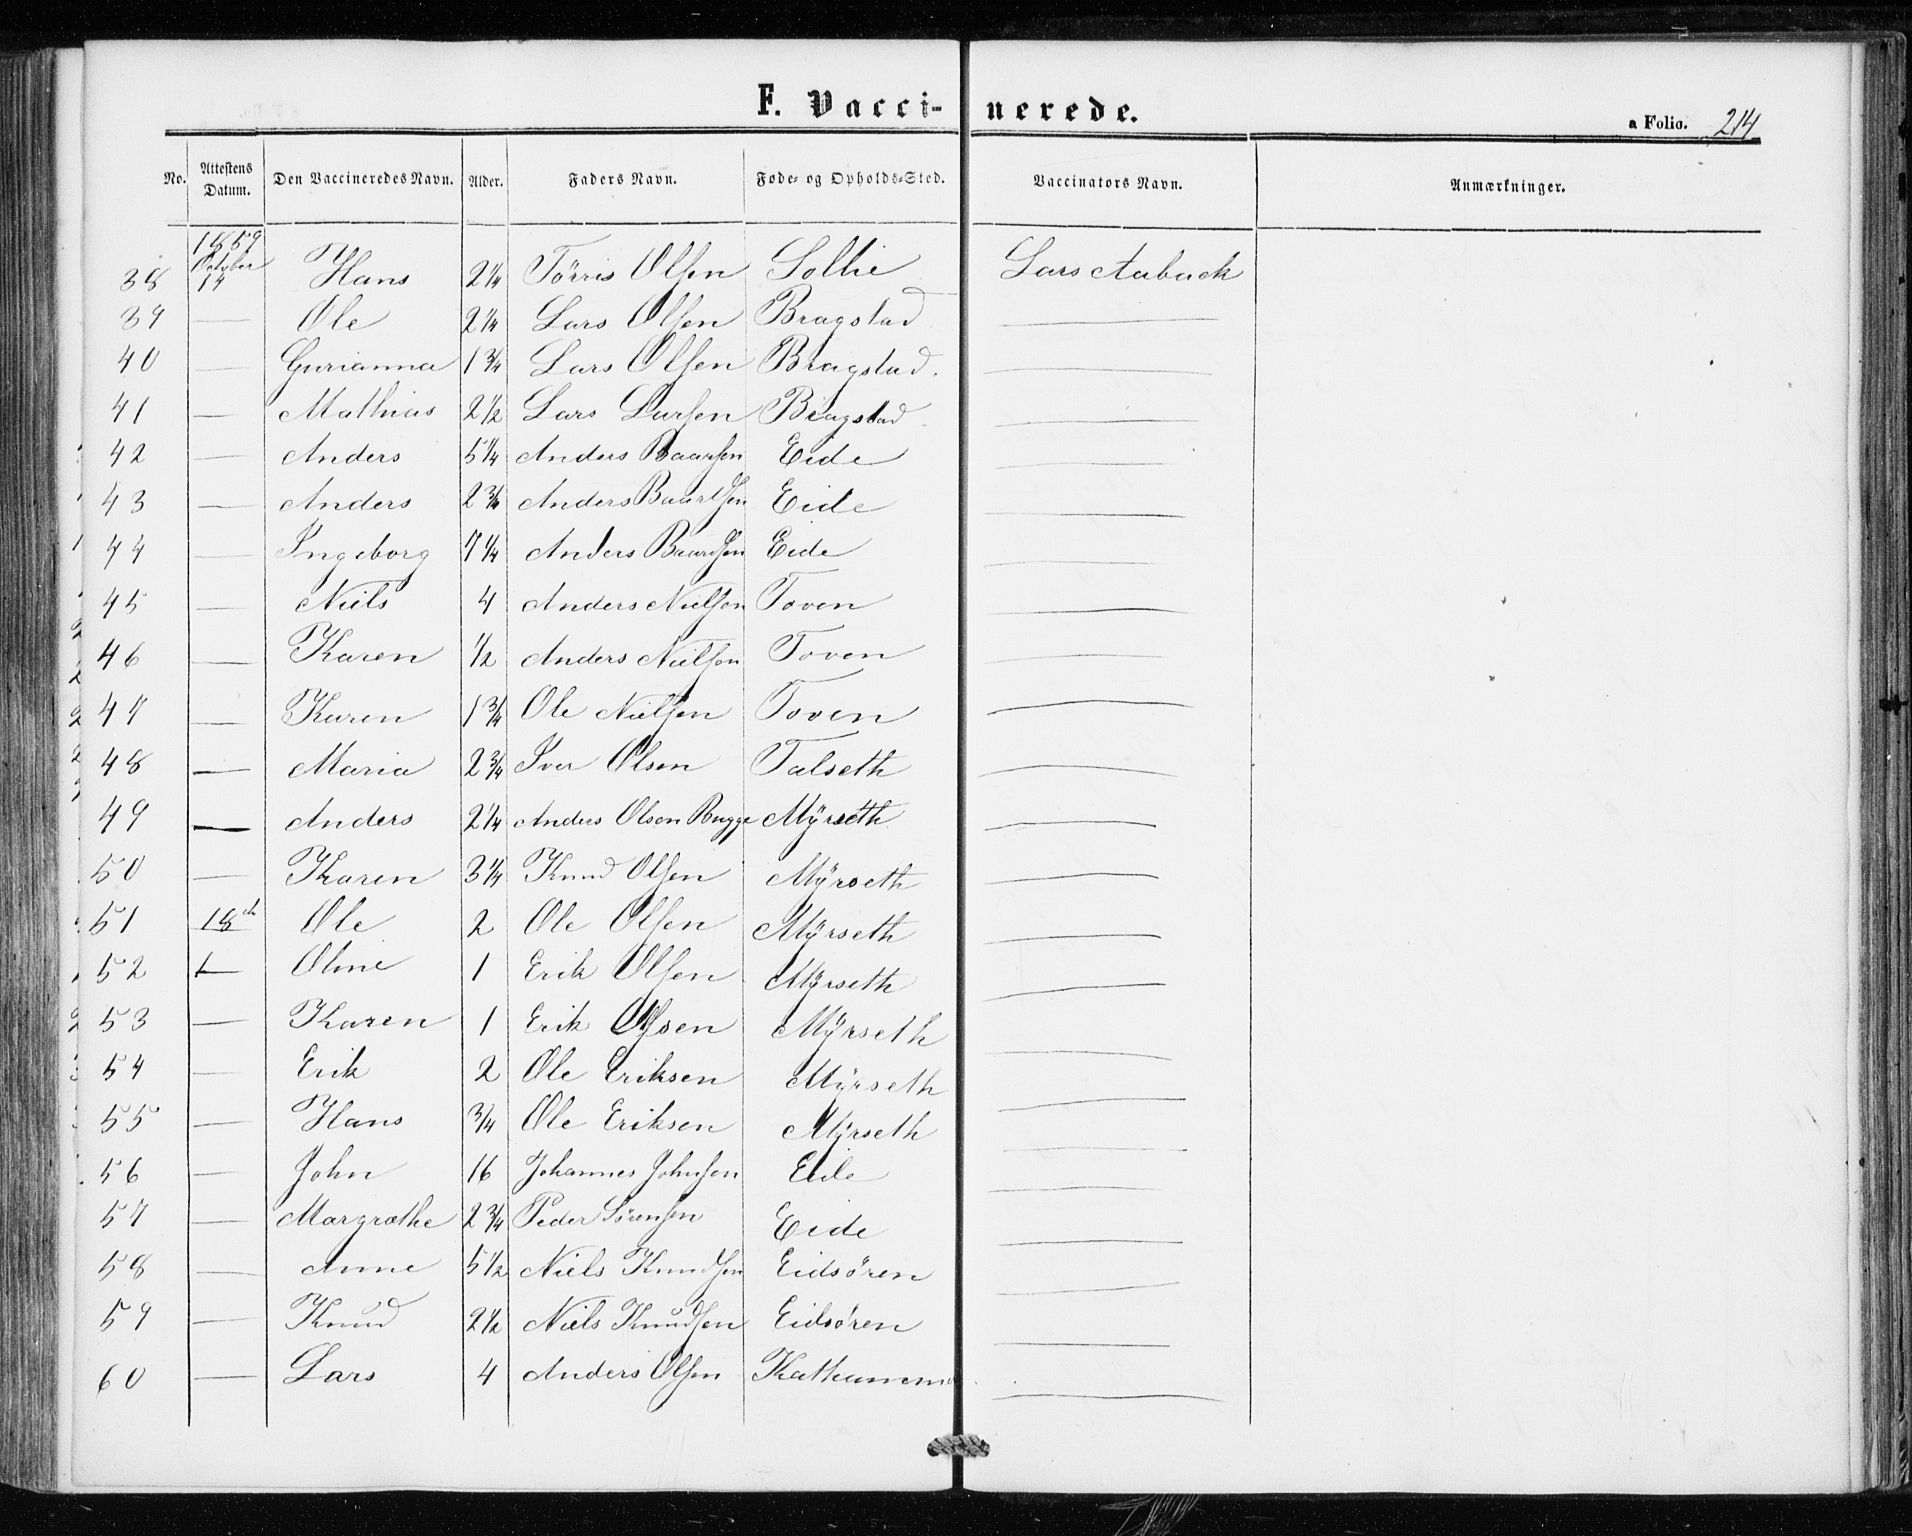 F. Vacci- nerede.
a Folio. 214
No. Attestens Datum. Den Vaccineredes Navn. Alder. Faders Navn. Føde- og Opholds-Sted. Vaccinators Navn. Anmærkninger.
1859
October
38 14 Hans 2 1/4 Törris Olsen Sollie Lars Aabuck
39 — Ole 2 1/4 Lars Olsen Bragstad —
40 — Gurianna 1 3/4 Lars Olsen Bragstad. —
41 — Mathias 2 1/2 Lars Larsen Bragstad —
42 — Anders 5 1/4 Anders Baarsen Eide —
43 — Anders 2 3/4 Anders Baardsen Eide —
44 — Ingeborg 7 1/4 Anders Baardsen Eide —
45 — Niels 4 Anders Nielsen Toven —
46 — Karen 1/2 Anders Nielsen Toven —
47 — Karen 1 3/4 Ole Nielsen Toven —
48 — Maria 2 3/4 Iver Olsen Talseth —
49 — Anders 2 1/4 Anders Olsen Bugge Mÿrseth —
50 — Karen 3 1/4 Knud Olsen Mÿrseth —
51 18de Ole 2 Ole Olsen Mÿrseth —
52 — Oline 1 Erik Olsen Mÿrseth —
53 — Karen 1 Erik Olsen Mÿrseth —
54 — Erik 2 Ole Eriksen Mÿrseth —
55 — Hans 3/4 Ole Eriksen Mÿrseth —
56 — John 16 Johannes Johnsen Eide —
57 — Margrethe 2 3/4 Peder Sörensen Eide —
58 — Anne 5 1/2 Niels Knudsen Eidsören —
59 — Knud 2 1/2 Niels Knudsen Eidsören —
60 — Lars 4 Anders Olsen —